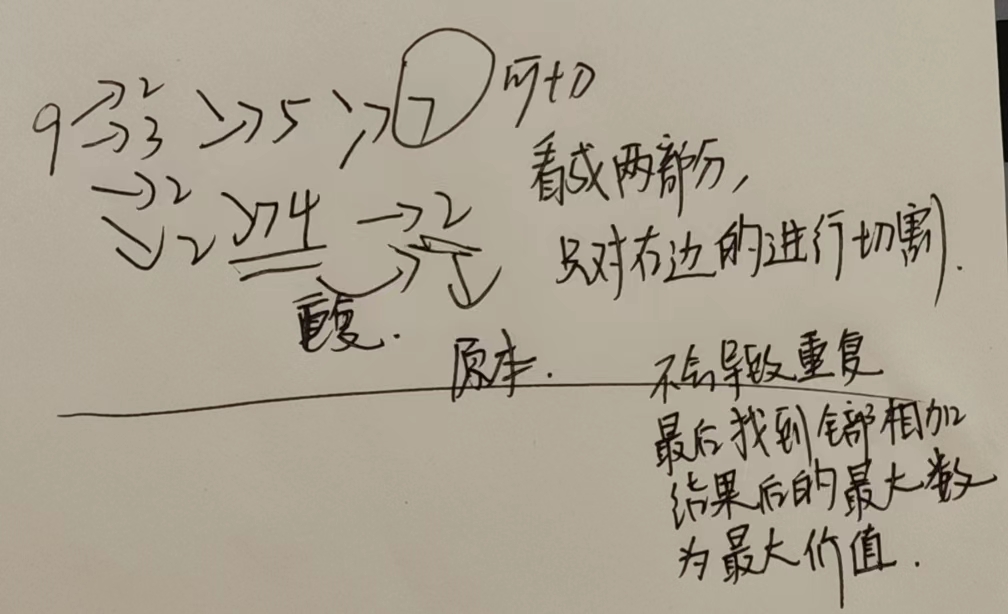 9 →2 →3 →5 →7 可+0
→2 →2 →4 →2
看成两部分，
只对右边的进行切割.
重复.
原本.
不会导致重复
最后找到全部相加
结果后的最大数
为最大价值.